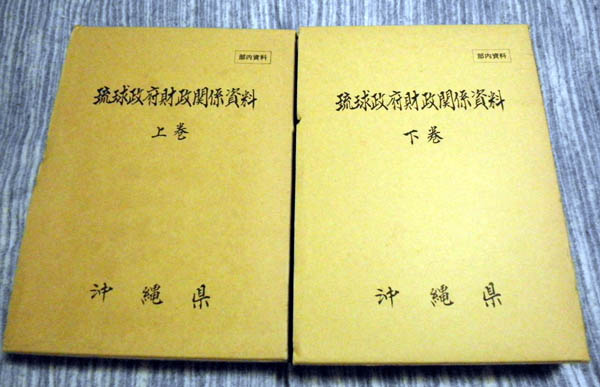 部内資料
琉球政府財政関係資料
上巻
沖縄県
部内資料
琉球政府財政関係資料
下巻
沖縄県